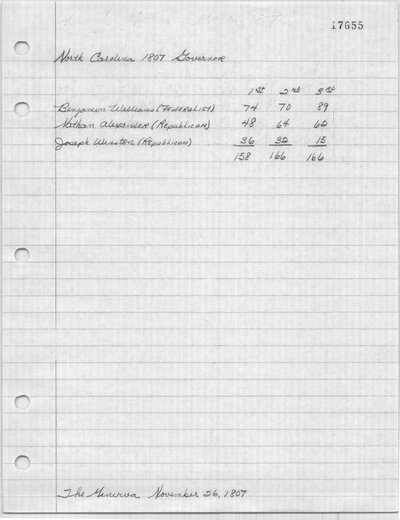 17655
North Carolina 1807 Governor
1st 2nd 3rd
Benjamin Williams (Federalist) 74 70 89
Nathan Alexander (Republican) 48 64 62
Joseph Winston (Republican) 36 32 15
158 166 166
The Minerva November 26, 1807